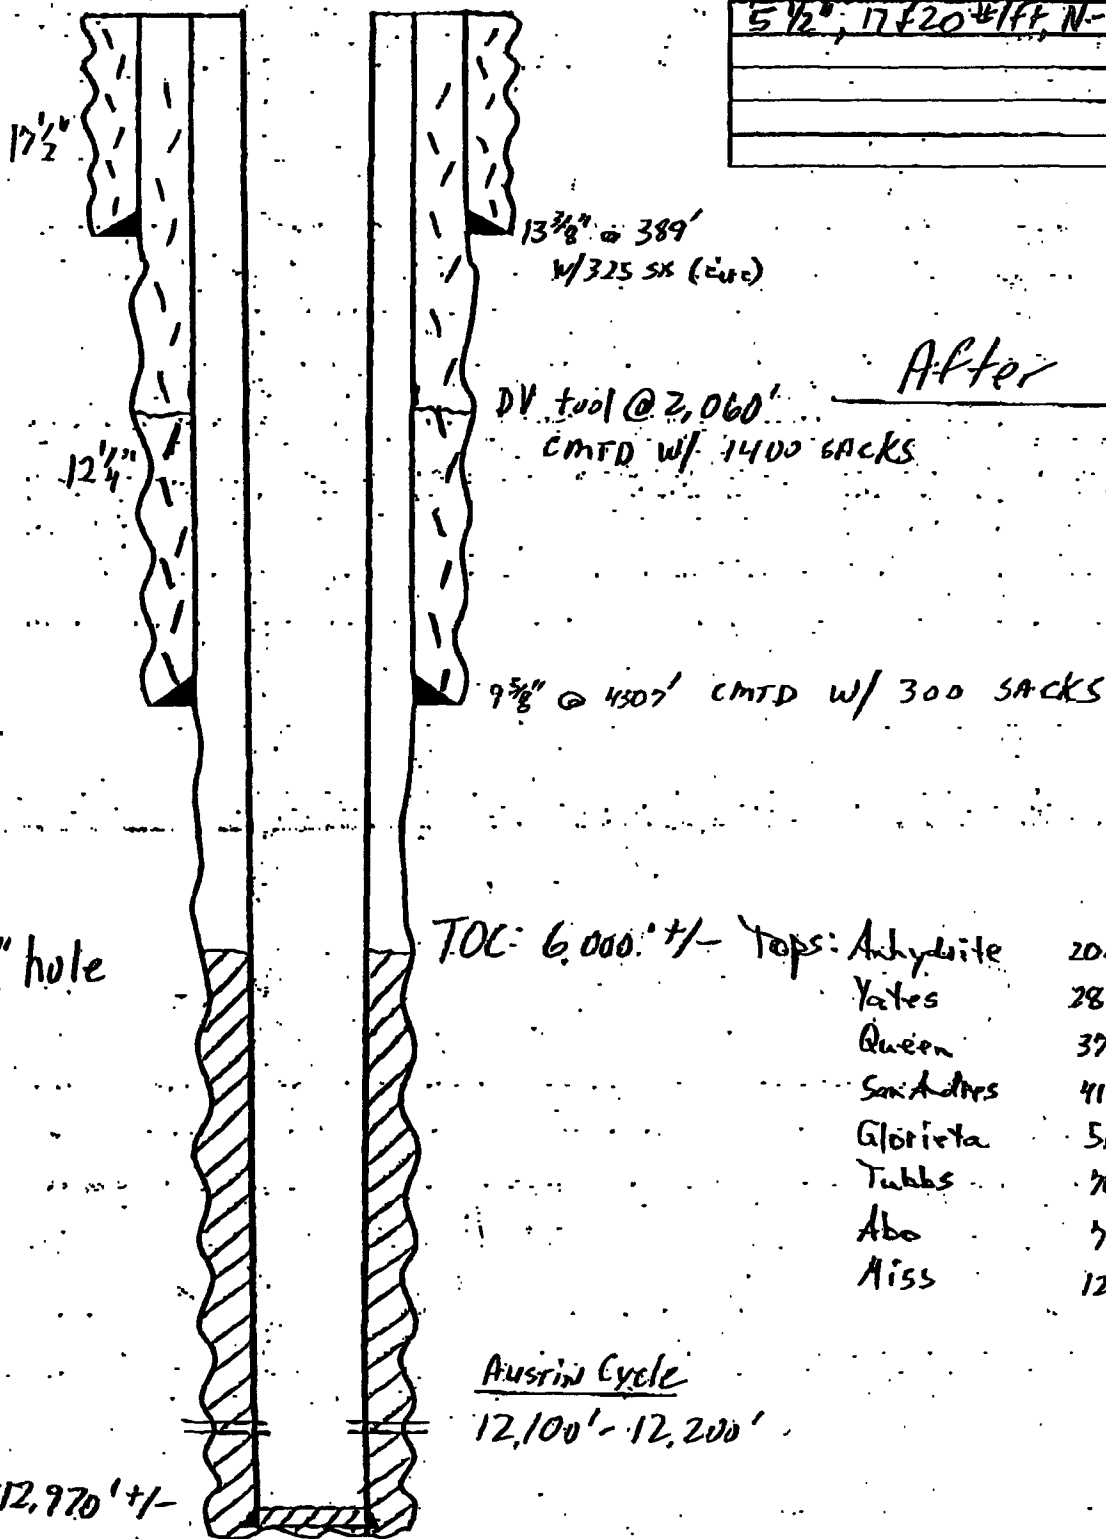 5 1/2", 17 & 20 #/ft, N-
17 1/2"
13 3/8" @ 389'
w/325 sx (circ)
After
DV tool @ 2,060'
CMTD W/ 1400 SACKS
12 1/4"
9 5/8" @ 4507' CMTD W/ 300 SACKS
" hole
TOC: 6,000.' +/- Tops: Anhydrite 20
Yates 28
Queen 37
San Andres 41
Glorieta 5
Tubbs
Abo
Miss 12
Austin Cycle
12,100' - 12,200'
12,970' +/-